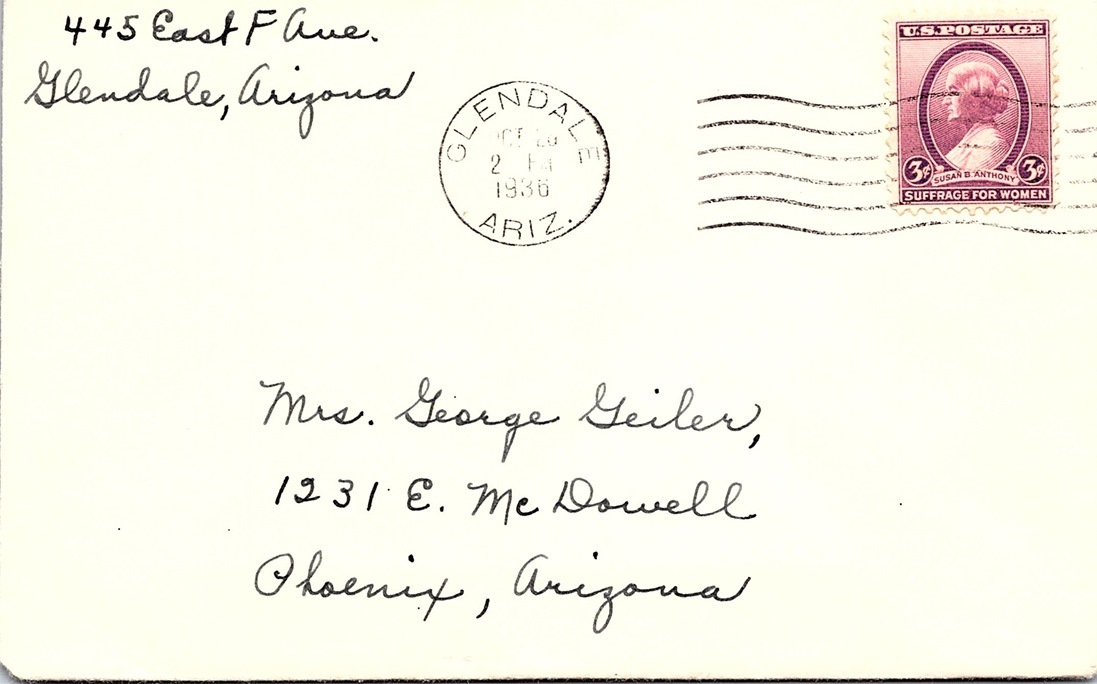 445 East F Ave.
Glendale, Arizona
GLENDALE
2 PM
1936
ARIZ.
U.S. POSTAGE
3¢ 3¢
SUSAN B. ANTHONY
SUFFRAGE FOR WOMEN
Mrs. George Geiler,
1231 E. McDowell
Phoenix, Arizona